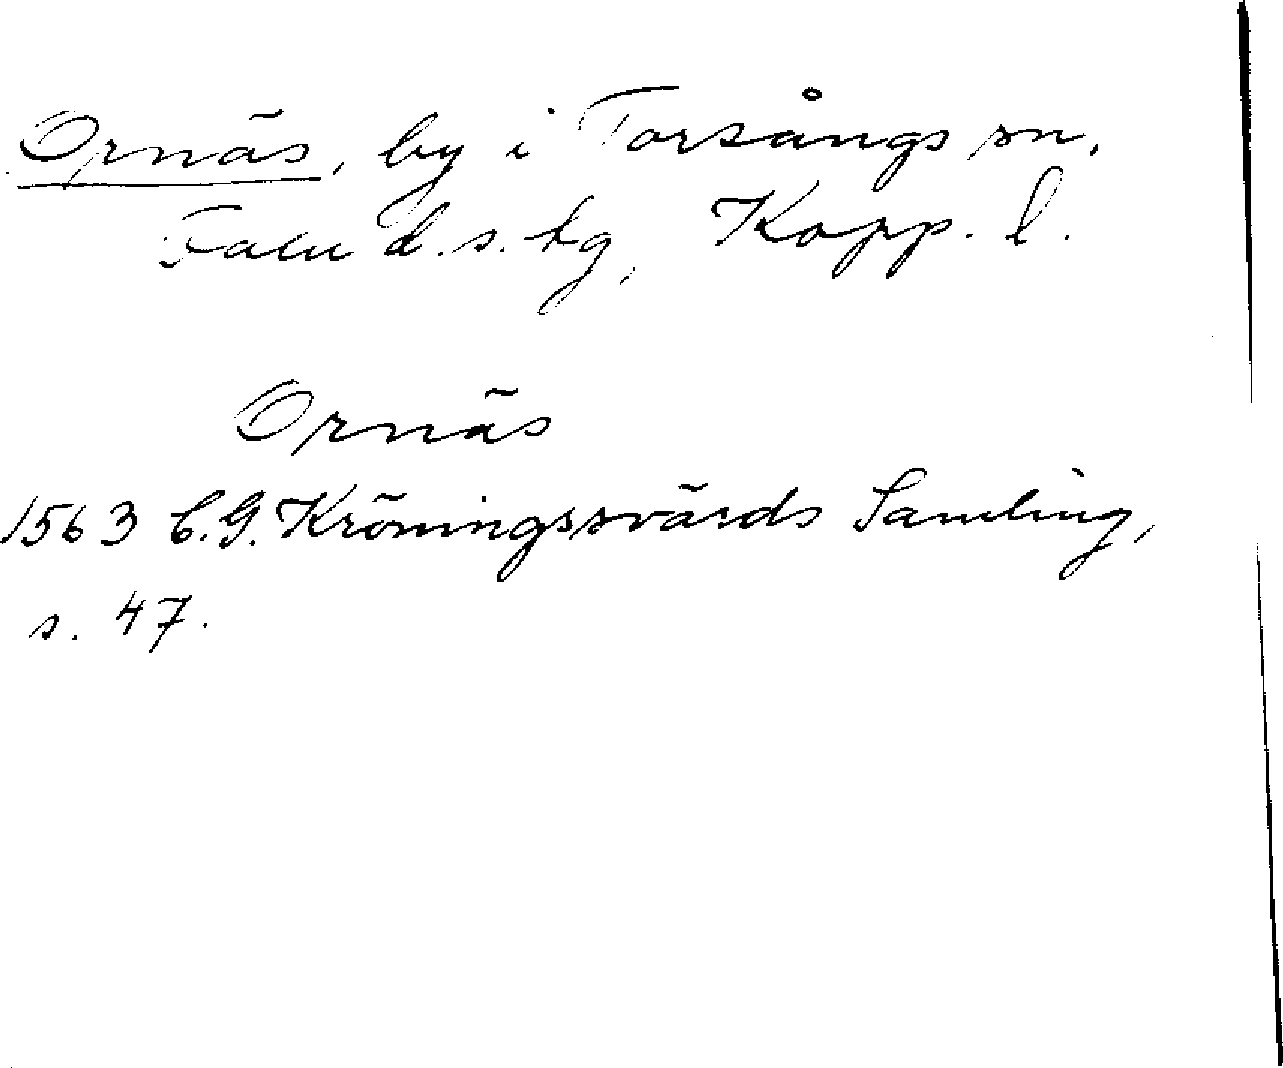 Ornäs, by i Torsångs sn,
Falu d.s. tg, Kopp. l.
Ornäs
1563 C.G. Kröningssvärds Samling,
s. 47.